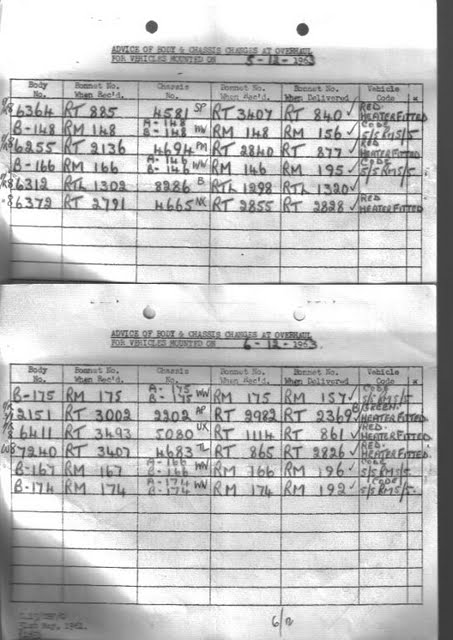 ADVICE OF BODY & CHASSIS CHANGES AT OVERHAUL
FOR VEHICLES MOUNTED ON 5-12-1963
Body No. Bonnet No. When Rec'd. Chassis No. Bonnet No. When Rec'd. Bonnet No. When Delivered Vehicle Code
6364 RT 885 4581 SP RT 3407 RT 840 ✓ RED. HEATER FITTED
B-148 RM 148 A-148 B-148 WW RM 148 RM 156 ✓ CODE S/S RM5/5
6255 RT 2136 4694 PM RT 2840 RT 877 ✓ RED HEATER FITTED
B-166 RM 166 A-146 B-146 WW RM 146 RM 195 ✓ CODE S/S RM5/5
6312 RTL 1302 8286 B RTL 1298 RTL 1320 ✓
6372 RT 2791 4665 NX RT 2855 RT 2828 ✓ RED HEATER FITTED
ADVICE OF BODY & CHASSIS CHANGES AT OVERHAUL
FOR VEHICLES MOUNTED ON 6-12-1963
Body No. Bonnet No. When Rec'd. Chassis No. Bonnet No. When Rec'd. Bonnet No. When Delivered Vehicle Code
B-175 RM 175 A-175 B-175 WW RM 175 RM 157 ✓ CODE S/S RM5/5
2151 RT 3002 2202 AP RT 2982 RT 2369 ✓ GREEN. HEATER FITTED
6411 RT 3493 5080 UX RT 1114 RT 861 ✓ RED. HEATER FITTED
7240 RT 3407 4683 TL RT 865 RT 2826 ✓ RED. HEATER FITTED
B-167 RM 167 A-166 B-166 WW RM 166 RM 196 ✓ CODE S/S RM5/5
B-174 RM 174 A-174 B-174 WW RM 174 RM 192 ✓ CODE S/S RM5/5
31st May, 1961.